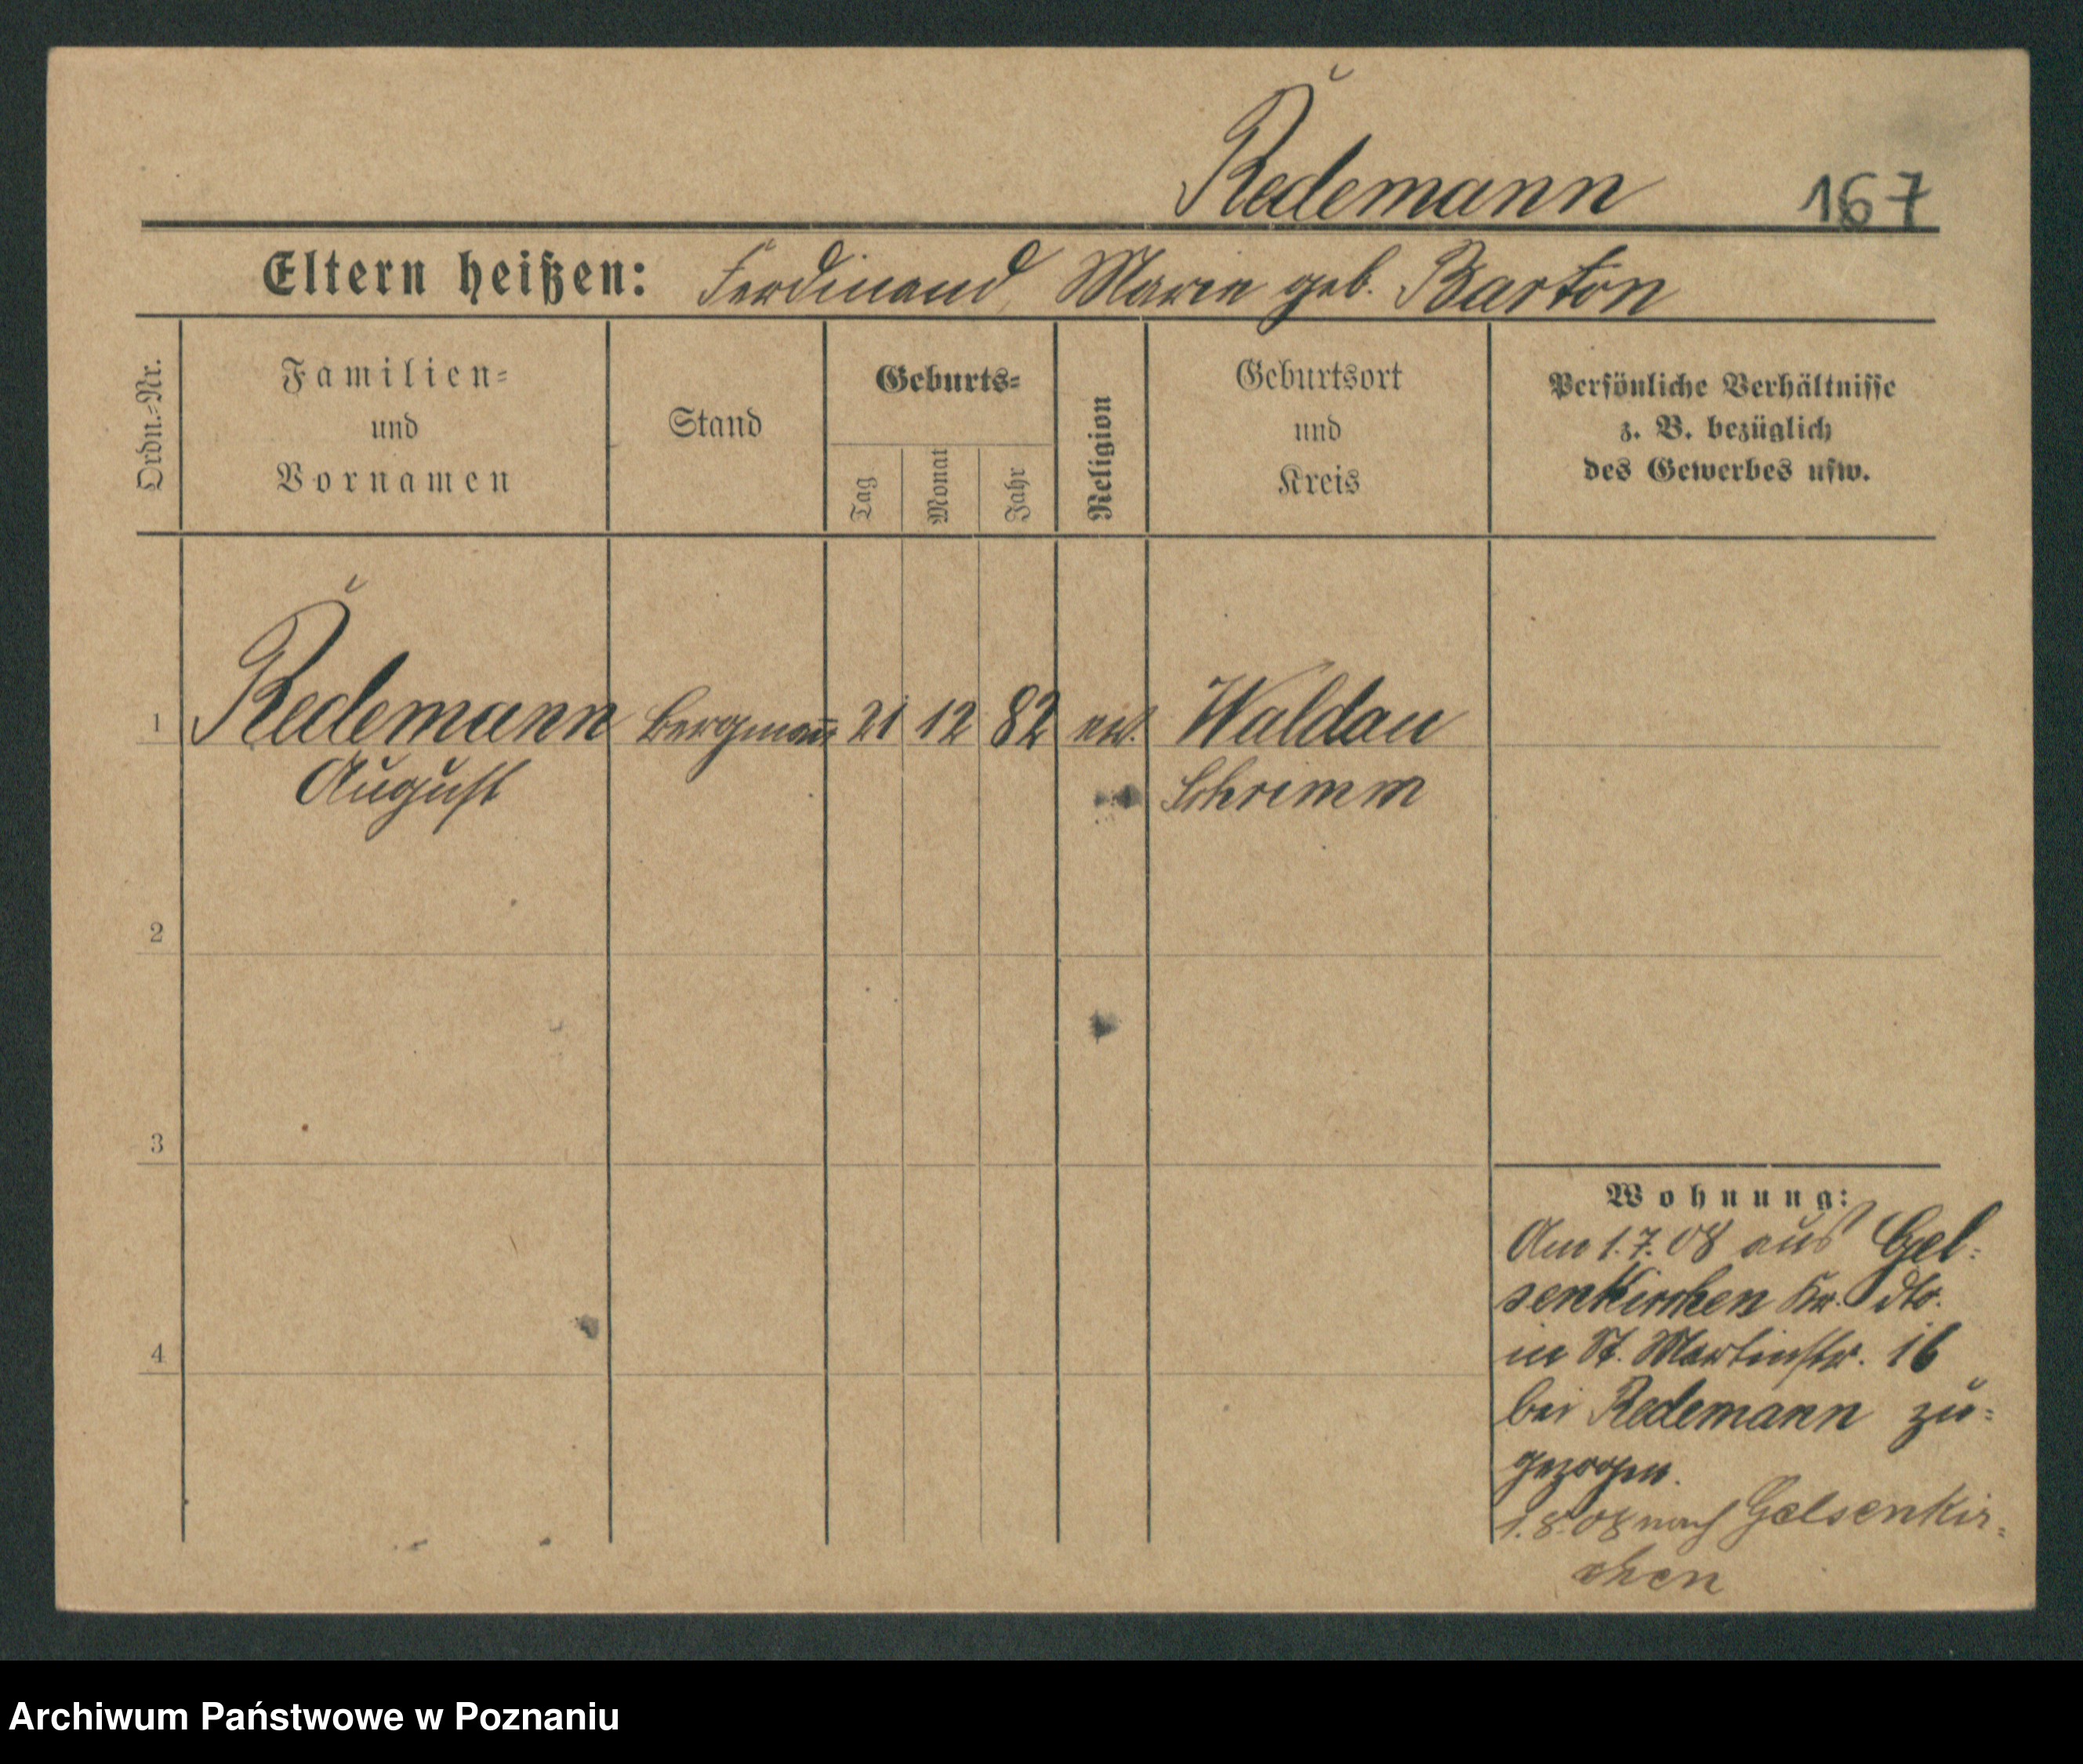 Redemann 167
Eltern heißen: Ferdinand, Marie geb. Barton
Ordn.=Nr.
Familien=
und
Vornamen
Stand
Geburts=
Tag
Monat
Jahr
Religion
Geburtsort
und
Kreis
Persönliche Verhältnisse
z. B. bezüglich
des Gewerbes usw.
1 Redemann Bergmann 21 12 82 ev. Waldau
August Schrimm
2
3
4
Wohnung:
Am 1.7.08 aus Gel=
senkirchen Kr. dto.
in St. Martinstr. 16
bei Redemann zu=
gezogen.
1.8.08 nach Gelsenkir=
chen
Archiwum Państwowe w Poznaniu